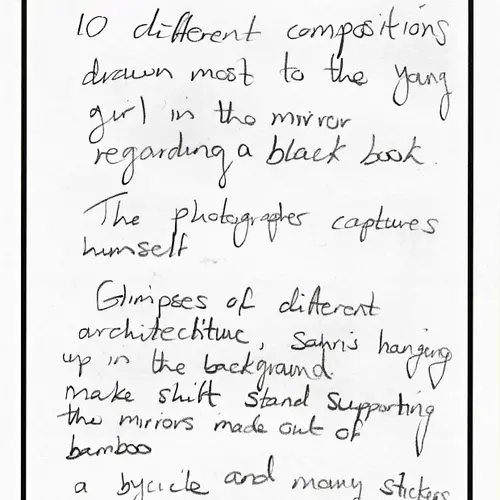 10 different compositions
drawn most to the young
girl in the mirror
regarding a black book.
The photographer captures
himself
Glimpses of different
architecture, Sapris hanging
up in the background.
make shift stand supporting
the mirrors made out of
bamboo
a bycicle and many stickers